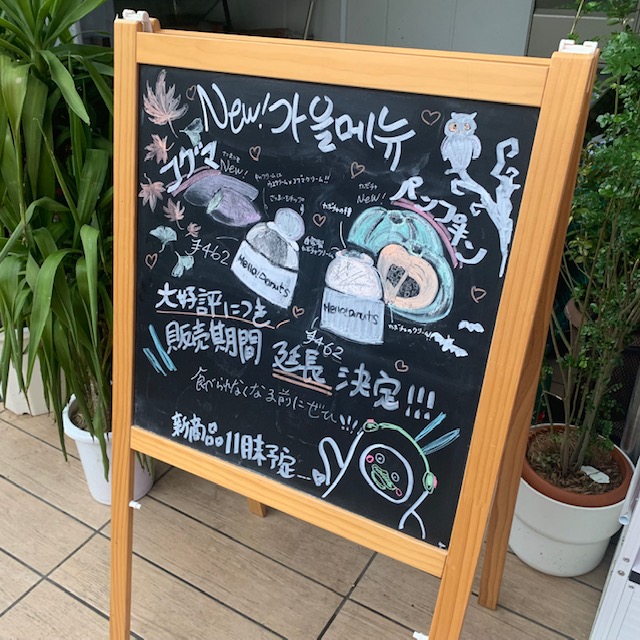 New! 가을메뉴
コグマ
New!
パンプキン
かぼちゃ
New!
¥462
Hello! Donuts
Hello! Donuts
¥462
大好評につき
販売期間 延長 決定!!!
食べられなくなる前にぜひ!!!
新商品11月末予定…